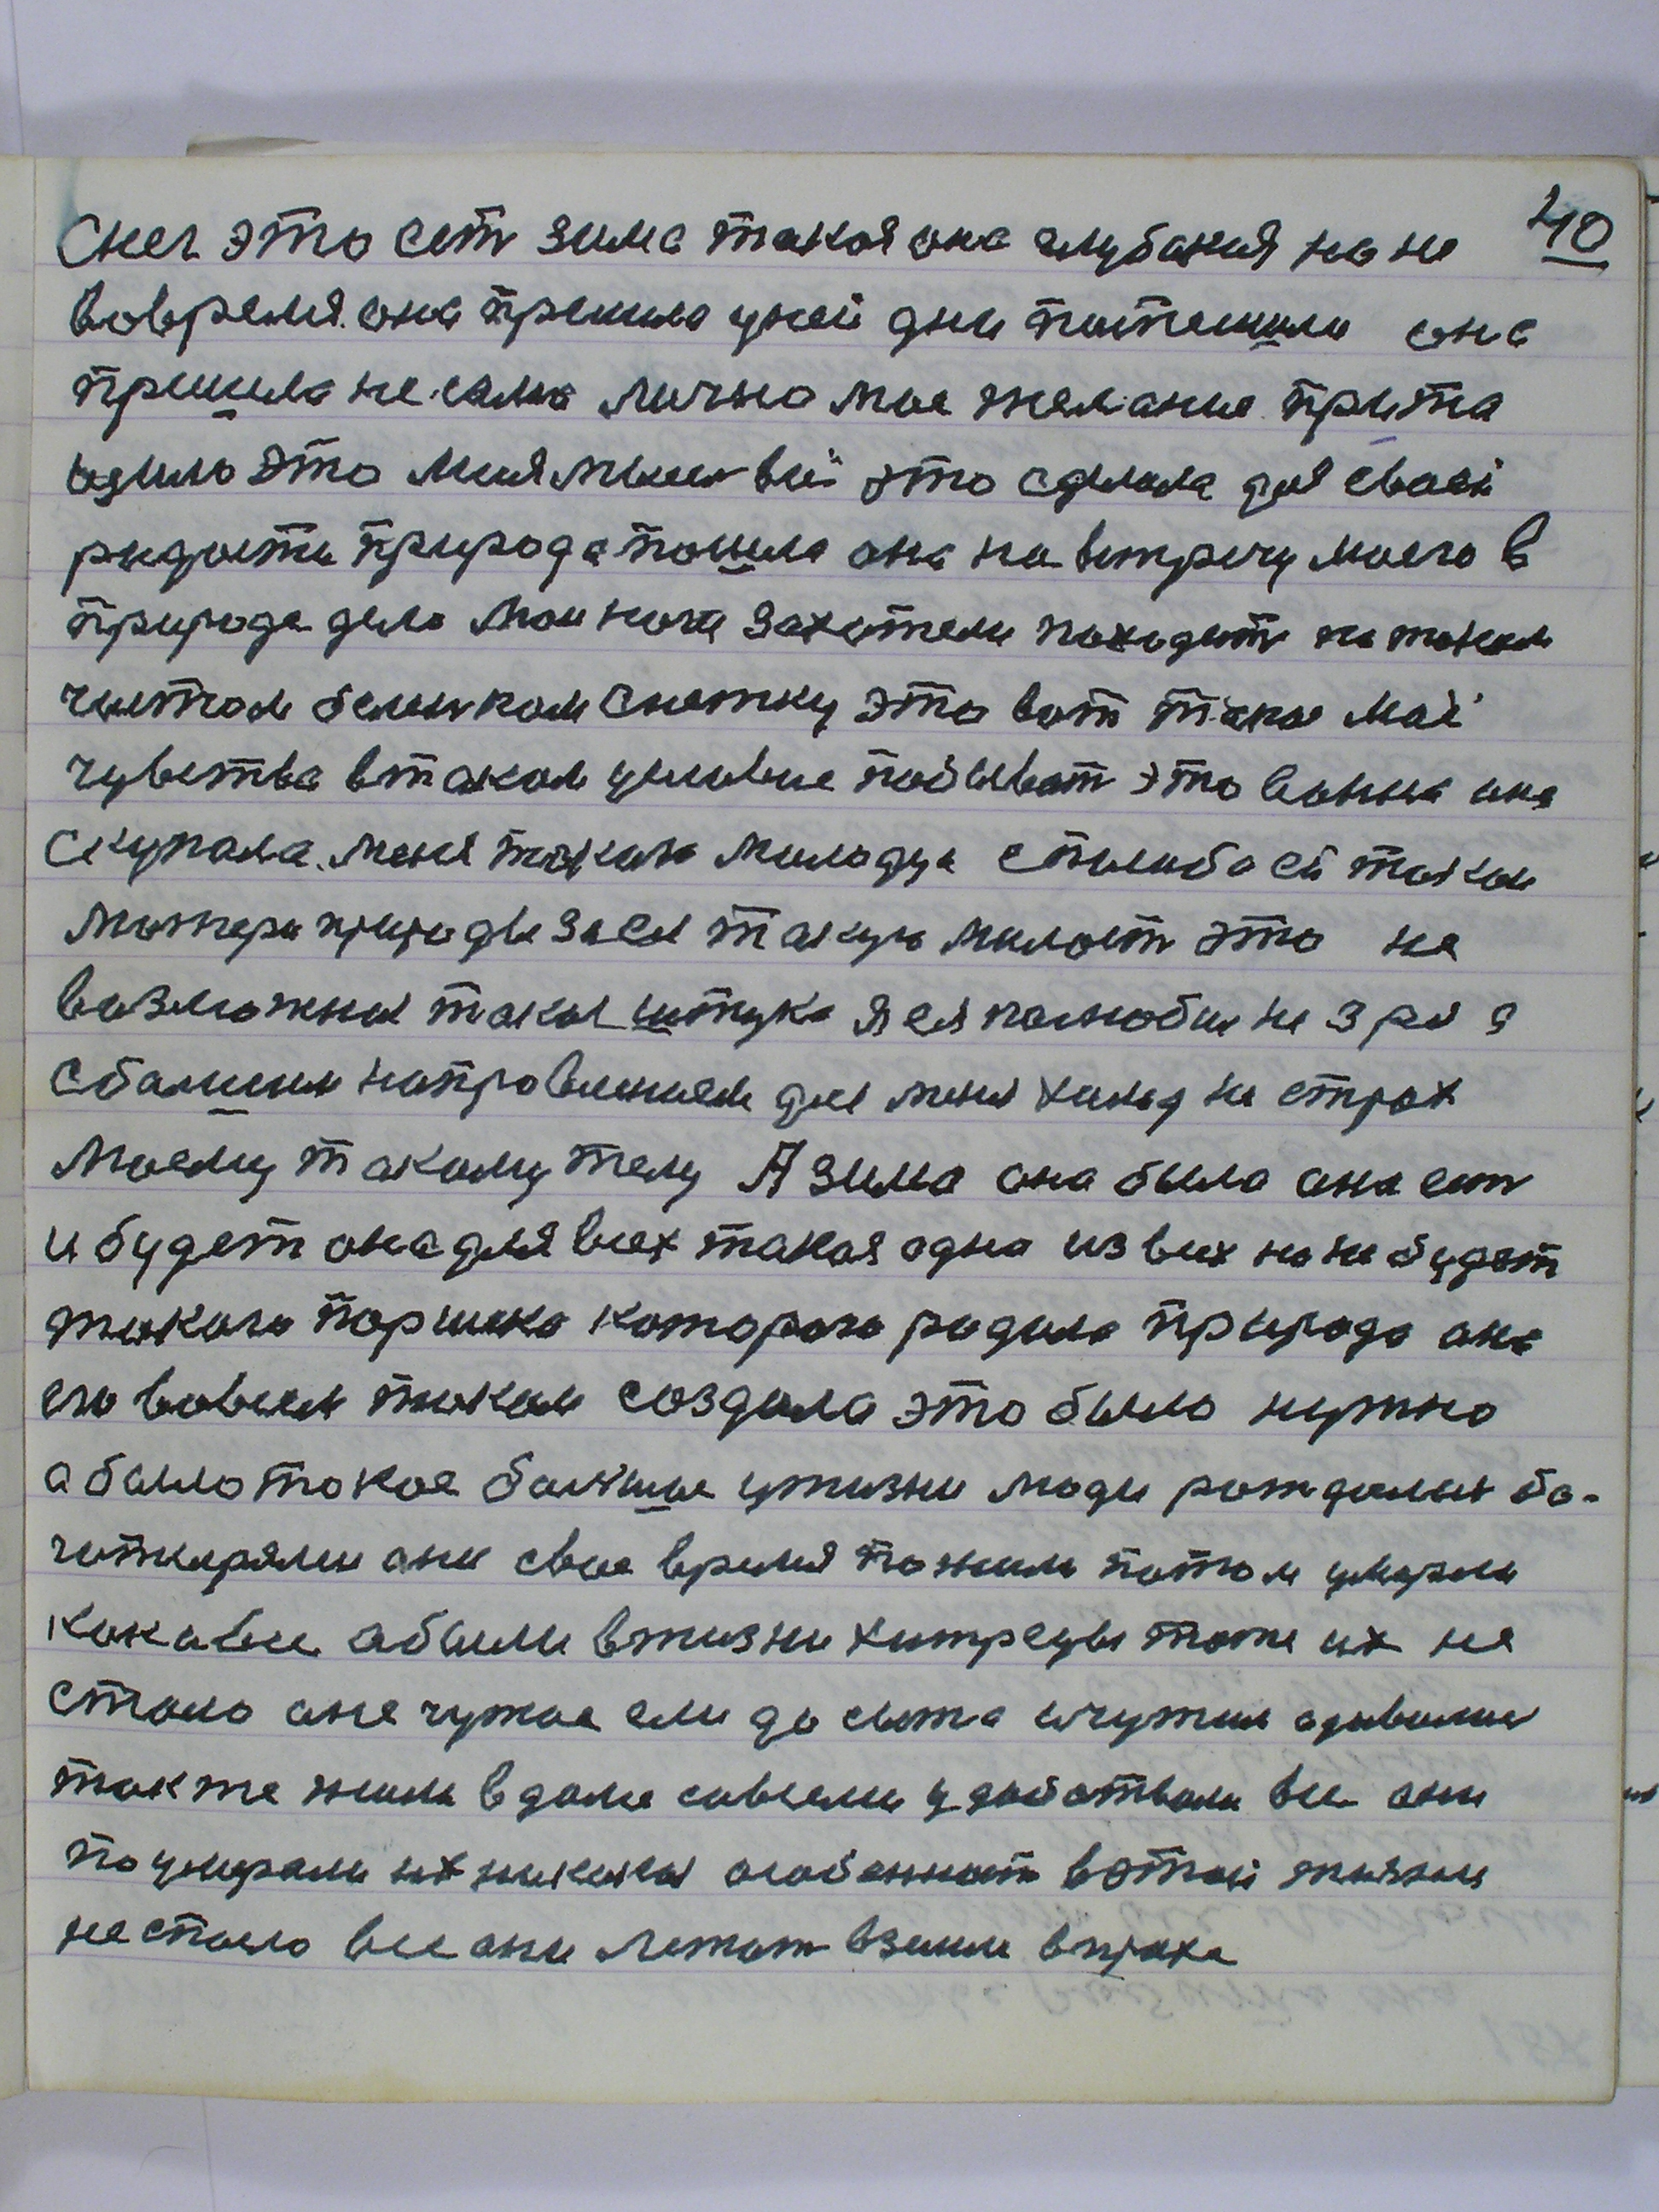 40
Снег это сеть зима такая она глубакия но не
вовремя. она пришла уней дни патекли она
пришла не сама лично мое желание прита
щило это мия мысль вей это сделала для своей
радости природа пошла она на встречу моего в
природе дела мои ноги захатели походит на таком
чистом беленком снежку это вот такое май
чувства втаком условие побыват это ванна она
скупала. меня такого молодца спасиба ей такой
матери природы заея такую милост это не
возможная такая штука я ея полюбил не зря а
сбалшим направлением для меня холод не страх
Моему такому телу А зима она была она ест
и будет она для всех такая одна из всех но не будет
такого Поршека которого радила природа она
его вовсем таком создала это было нужно
а было токое болшое ужизни люди рождалис бо-
гатырями они свое время пожили потом умерли
как и все а были вжизни хитрецы тоже их не
стало оне чужое ели до сыта ичужим адивалис
также жили вдоме совсеми удобствами все они
поумирали их никакая особенност вэтой жизни
не спасло все они лежат вземли впрахе